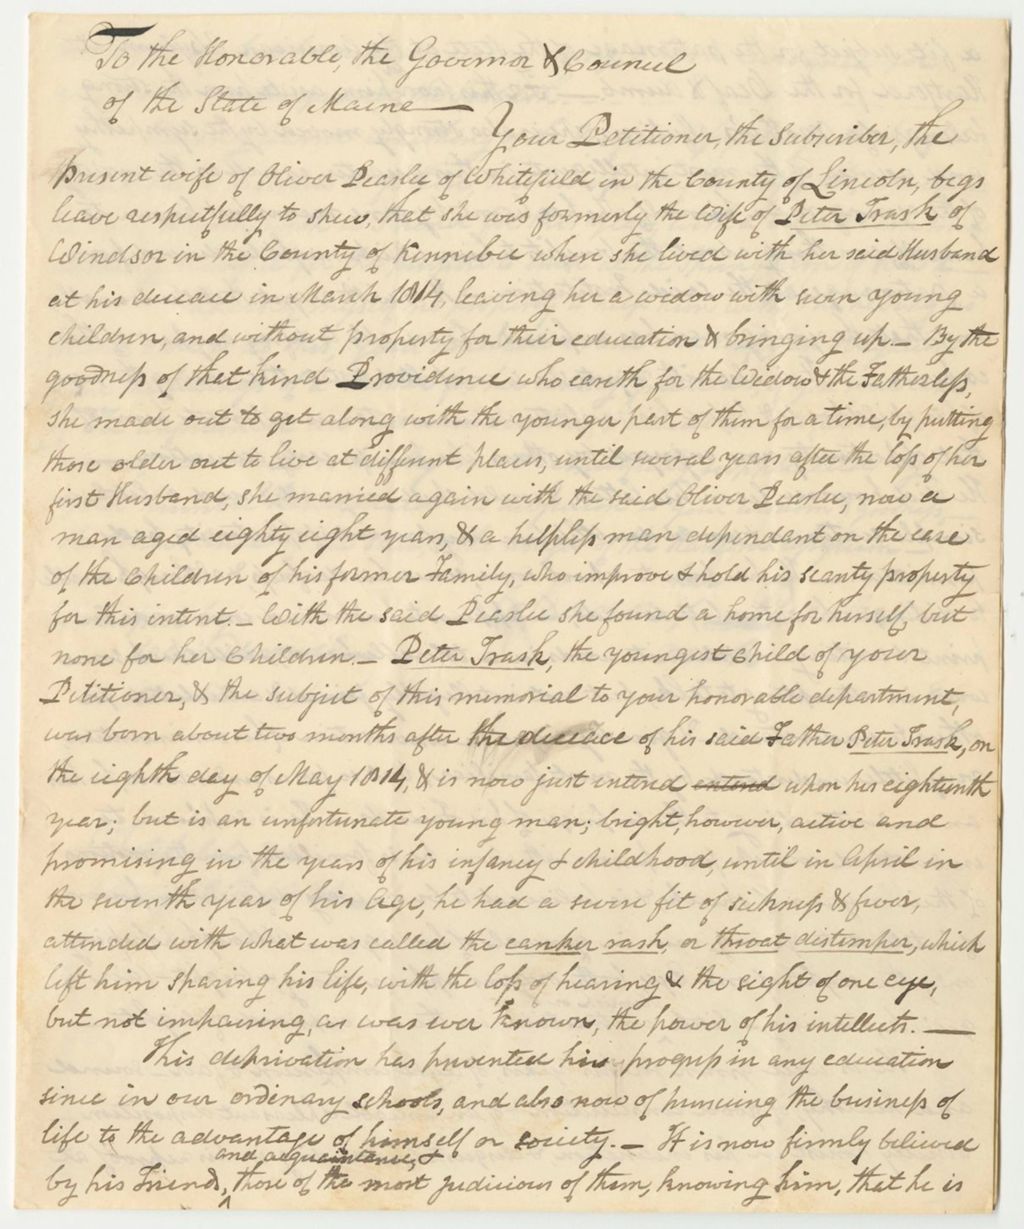 To the Honorable, the Governor & Council
of the State of Maine —
Your Petitioner, the subscriber, the
present wife of Oliver Peaslee of Whitefield in the County of Lincoln, begs
leave respectfully to shew, that she was formerly the Wife of Peter Trask of
Windsor in the County of Kennebec where she lived with her said Husband
at his decease in March 1814, leaving her a widow with seven young
children, and without property for their education & bringing up. — By the
goodness of that kind Providence who careth for the Widow & the Fatherless,
she made out to get along with the younger part of them for a time, by putting
those older out to live at different places, until several years after the loss of her
first Husband, she married again with the said Oliver Peaslee, now a
man aged eighty eight years, & a helpless man dependant on the care
of the Children of his former Family, who improve & hold his scanty property
for this intent. — With the said Peaslee she found a home for herself, but
none for her Children. — Peter Trask, the youngest Child of your
Petitioner, & the subject of this memorial to your honorable department,
was born about two months after the decease of his said Father Peter Trask, on
the eighth day of May 1814, & is now just entered entered upon his eighteenth
year; but is an unfortunate young man; bright, however, active and
promising in the years of his infancy & childhood, until in April in
the seventh year of his Age, he had a severe fit of sickness & fever,
attended with what was called the canker rash, or throat distemper, which
left him sparing his life, with the loss of hearing & the sight of one eye,
but not impairing, as was ever known, the power of his intellects. —
This deprivation has prevented his progress in any education
since in our ordinary schools, and also now of pursuing the business of
life to the advantage of himself or society. — It is now firmly believed
and acquaintance, &
by his Friends, those of the most judicious of them, knowing him, that he is